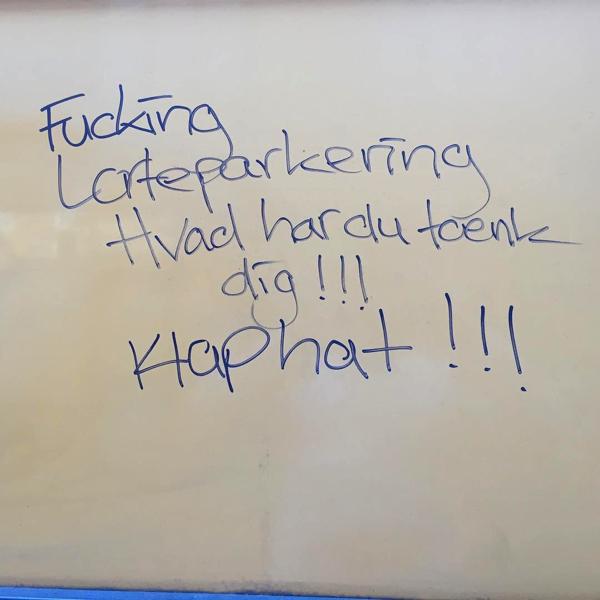 Fucking
Lorteparkering
Hvad har du tænk
dig !!!
Klaphat !!!